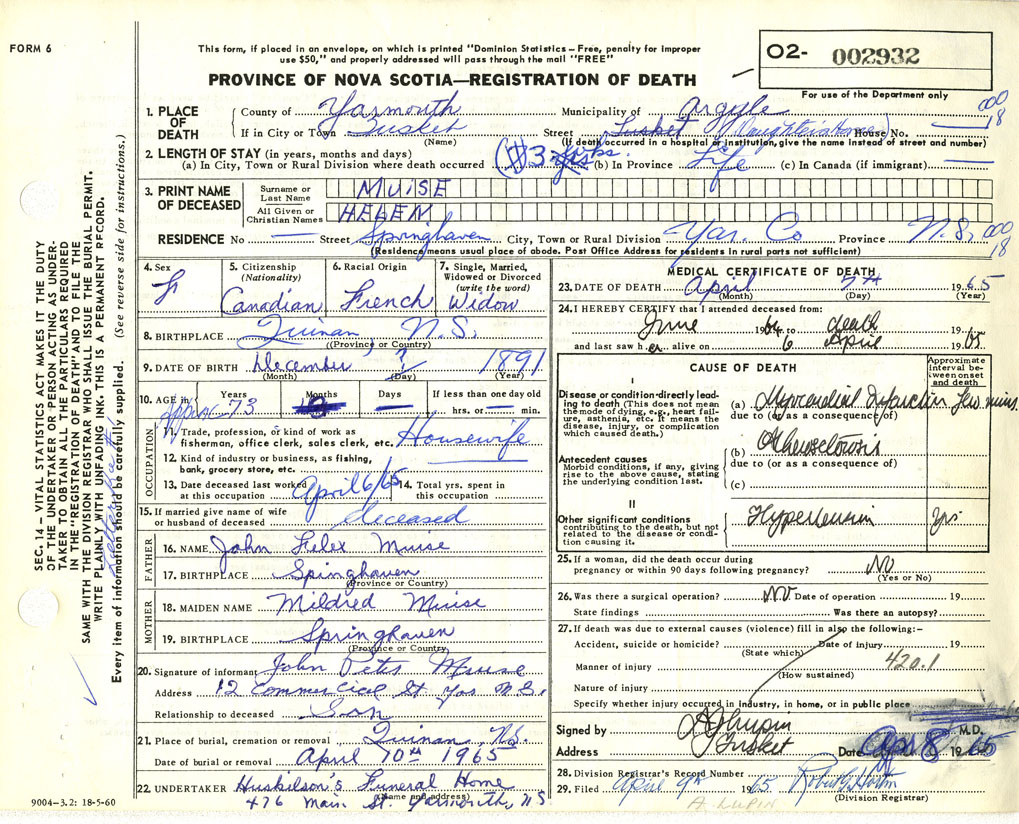 FORM 6
This form, if placed in an envelope, on which is printed "Dominion Statistics – Free, penalty for improper
use $50," and properly addressed will pass through the mail "FREE"
PROVINCE OF NOVA SCOTIA—REGISTRATION OF DEATH
O2- 002932
For use of the Department only
SEC. 14 – VITAL STATISTICS ACT MAKES IT THE DUTY
OF THE UNDERTAKER OR PERSON ACTING AS UNDER-
TAKER TO OBTAIN ALL THE PARTICULARS REQUIRED
IN THE "REGISTRATION OF DEATH" AND TO FILE THE
SAME WITH THE DIVISION REGISTRAR WHO SHALL ISSUE THE BURIAL PERMIT.
WRITE PLAINLY WITH UNFADING INK. THIS IS A PERMANENT RECORD.
Every item of information should be carefully supplied. (See reverse side for instructions.)
1. PLACE OF DEATH
County of Yarmouth Municipality of Argyle 000
If in City or Town Tusket Street Tusket (Daughter's Home) House No. — 18
(Name) (If death occurred in a hospital or institution, give the name instead of street and number)
2. LENGTH OF STAY (in years, months and days)
(a) In City, Town or Rural Division where death occurred (3 (b) In Province Life (c) In Canada (if immigrant) —
3. PRINT NAME OF DECEASED
Surname or Last Name MUISE
All Given or Christian Names HELEN
RESIDENCE No — Street Springhaven City, Town or Rural Division Yar. Co Province N.S. 000
18
(Residence means usual place of abode. Post Office Address for residents in rural parts not sufficient)
4. Sex F
5. Citizenship (Nationality) Canadian
6. Racial Origin French
7. Single, Married, Widowed or Divorced (write the word) Widow
8. BIRTHPLACE Quinan N.S.
(Province or Country)
9. DATE OF BIRTH December ? 1891
(Month) (Day) (Year)
10. AGE in Years Months Days If less than one day old
approx 73 — hrs. or — min.
OCCUPATION
11. Trade, profession, or kind of work as
fisherman, office clerk, sales clerk, etc. Housewife
12. Kind of industry or business, as fishing,
bank, grocery store, etc.
13. Date deceased last worked at this occupation April 6/65
14. Total yrs. spent in this occupation
15. If married give name of wife
or husband of deceased deceased
FATHER
16. NAME John Felex Muise
17. BIRTHPLACE Spinghaven
(Province or Country)
MOTHER
18. MAIDEN NAME Mildred Muise
19. BIRTHPLACE Springhaven
(Province or Country)
20. Signature of informant John Pets Muise
Address 12 Commercial St Yar N.S.
Relationship to deceased Son
21. Place of burial, cremation or removal Quinan, N.S.
Date of burial or removal April 10th 1965
22. UNDERTAKER Huskilson's Funeral Home
(Name and address)
476 Main St. Yarmouth, N S
9004-3.2: 18-5-60
MEDICAL CERTIFICATE OF DEATH
23. DATE OF DEATH April 7th 1965
(Month) (Day) (Year)
24. I HEREBY CERTIFY that I attended deceased from:
June 1964 to death 19
and last saw her alive on 6 April 1965
CAUSE OF DEATH
Approximate interval between onset and death
I
Disease or condition directly lead-
ing to death (This does not mean
the mode of dying, e.g., heart fail-
ure, asthenia, etc. It means the
disease, injury, or complication
which caused death.)
(a) Myocardial Infarction few mins.
due to (or as a consequence of)
Antecedent causes
Morbid conditions, if any, giving
rise to the above cause, stating
the underlying condition last.
(b)
due to (or as a consequence of)
(c)
II
Other significant conditions
contributing to the death, but not
related to the disease or condi-
tion causing it.
Hypertension yrs
25. If a woman, did the death occur during
pregnancy or within 90 days following pregnancy? No
(Yes or No)
26. Was there a surgical operation? No Date of operation 19
State findings Was there an autopsy?
27. If death was due to external causes (violence) fill in also the following:–
Accident, suicide or homicide? Date of injury 19
(State which)
Manner of injury 420.1
(How sustained)
Nature of injury
Specify whether injury occurred in industry, in home, or in public place
Signed by M.D.
Address Tusket Date Apr 8 1965
28. Division Registrar's Record Number
29. Filed April 9th 1965 Robert G Horton
(Division Registrar)
A LUPIN